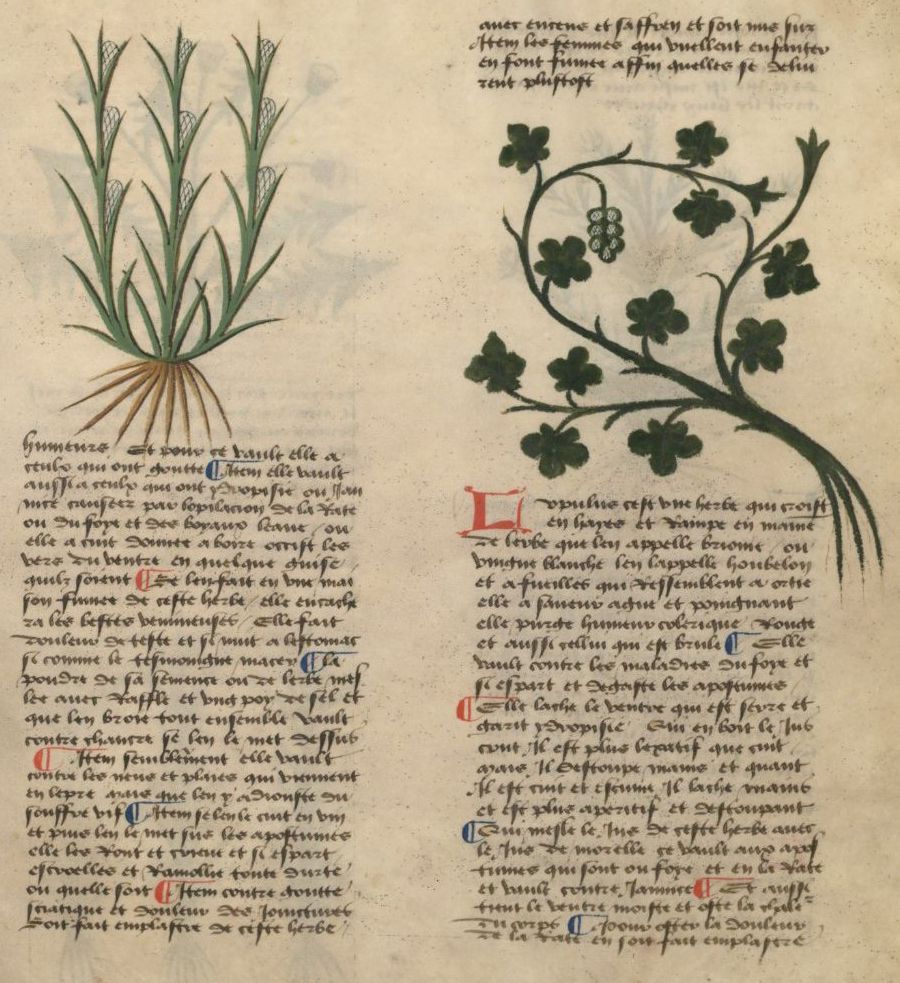 humeurs Et pour ce vault elle a
ceulx qui ont goutte ¶ Item elle vault
aussi a ceulx qui ont ydropisie ou Jau
nice causees par lopilacion de la Rate
ou du foye et des boyaux leaue ou
elle a cuit donnee a boire occist les
vers du ventre en quelque guise
quilz soient ¶ Se len fait en une mai
son fumee de ceste herbe elle enchace
ra les bestes venimeuses Elle fait
douleur de teste et si nuit a lestomac
si comme le tesmoingne macer ¶ La
pouldre de sa semence ou de lerbe mes
lee avec Raffle et ung poy de sel et
que len broie tout ensemble vault
contre chancre se len le met dessus
¶ Item semblement elle vault
contre les neus et plaies qui viennent
en lepre mais que len y adiouste du
souffre vif ¶ Item se len le cuit en vin
et puis len le met sus les apostumes
elle les Ront et et si espart
escroelles et Ramollie toute durte
ou quelle soit ¶ Item contre goutte
sciatique et douleur des Joinctures
soit fait emplastre de ceste herbe
avec encens et saffren et soit mis sur
Item les femmes qui vuellent enfanter
en font fumee affin quelles se deliu
rent plustost
Lupulus cest une herbe qui croist
en hayes et Rampe en maniere
de lerbe que len appelle brionie ou
vingne blanche len lappelle houbelon
et a fueilles qui Ressemblent a ortie
elle a saveur ague et poingnant
elle purge humeur colerique Rouge
et aussi cellui qui est brule ¶ Elle
vault contre les maladies du foye et
si espart et degaste les apostumes
¶ Elle lache le ventre qui est serre et
garit ydropisie Qui en boit le Jus
cru Il est plus lexatif que cuit
mais Il destoupe mains et quant
Il est cuit et escume Il lache mains
et est plus aperitif et destoupant
¶ Qui mesle le Jus de ceste herbe avec
le Jus de morelle ce vault aux apos
tumes qui sont ou foye et en la Rate
et vault contre Jaunice ¶ Et aussi
tient le ventre moiste et oste la chale
du corps ¶ Pour oster la douleur
de la Rate en soit fait emplastre